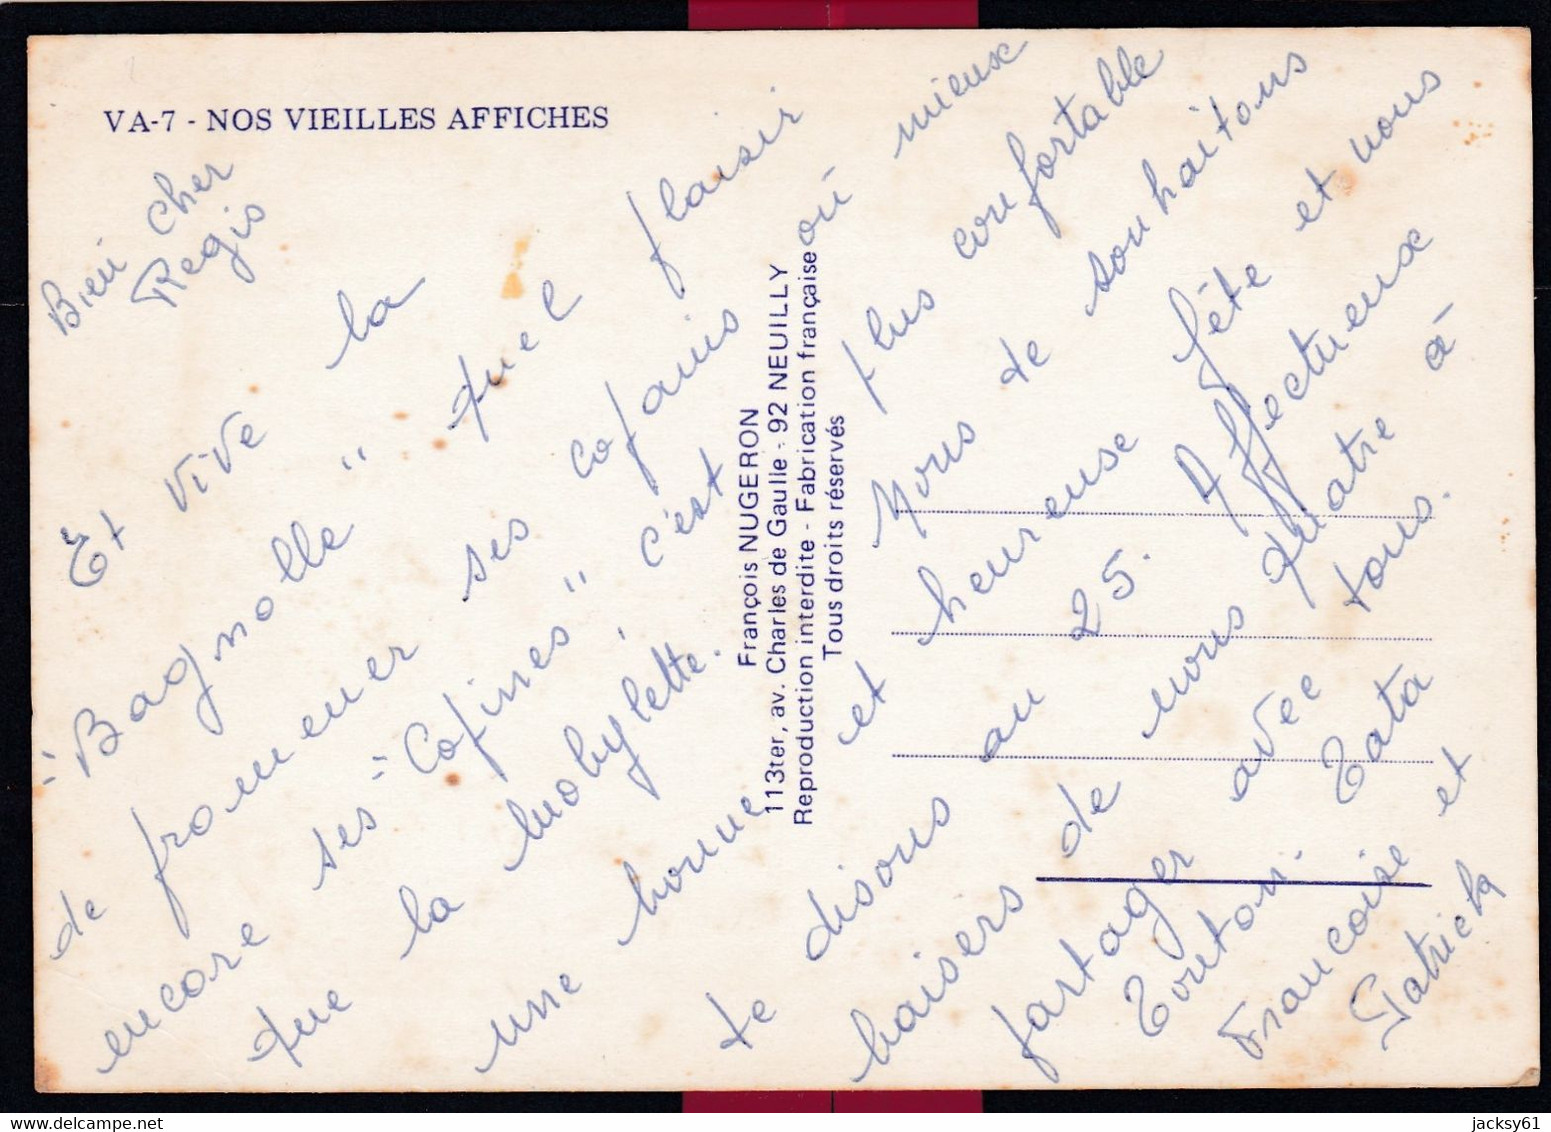 VA-7 - NOS VIEILLES AFFICHES
Bien cher
Regis
Et vive la
"Bagnolle" quel plaisir
de promener ses copains où mieux
encore ses "Copines" c'est plus confortable
que la mobylette. Nous te souhaitons
une bonne et heureuse fête et nous
te disons au 25. Affectueux
baisers de nous quatre à
partager avec tous.
Tonton. Tata
Françoise et
Patrick
François NUGERON
113ter, av. Charles de Gaulle - 92 NEUILLY
Reproduction interdite - Fabrication française
Tous droits réservés
jacksy61